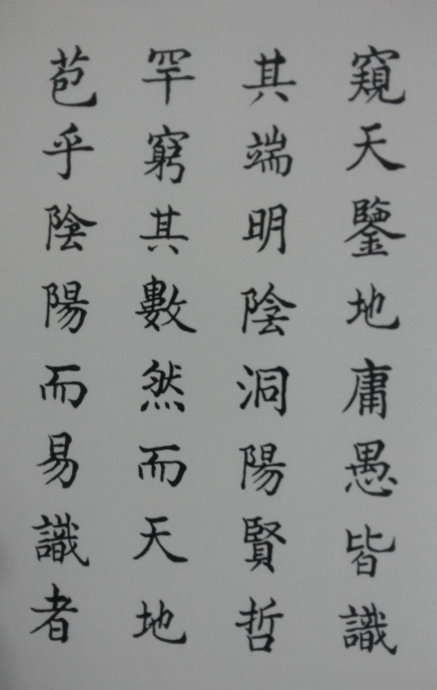 窺天鑒地庸愚皆識
其端明陰洞陽賢哲
罕窮其數然而天地
苞乎陰陽而易識者